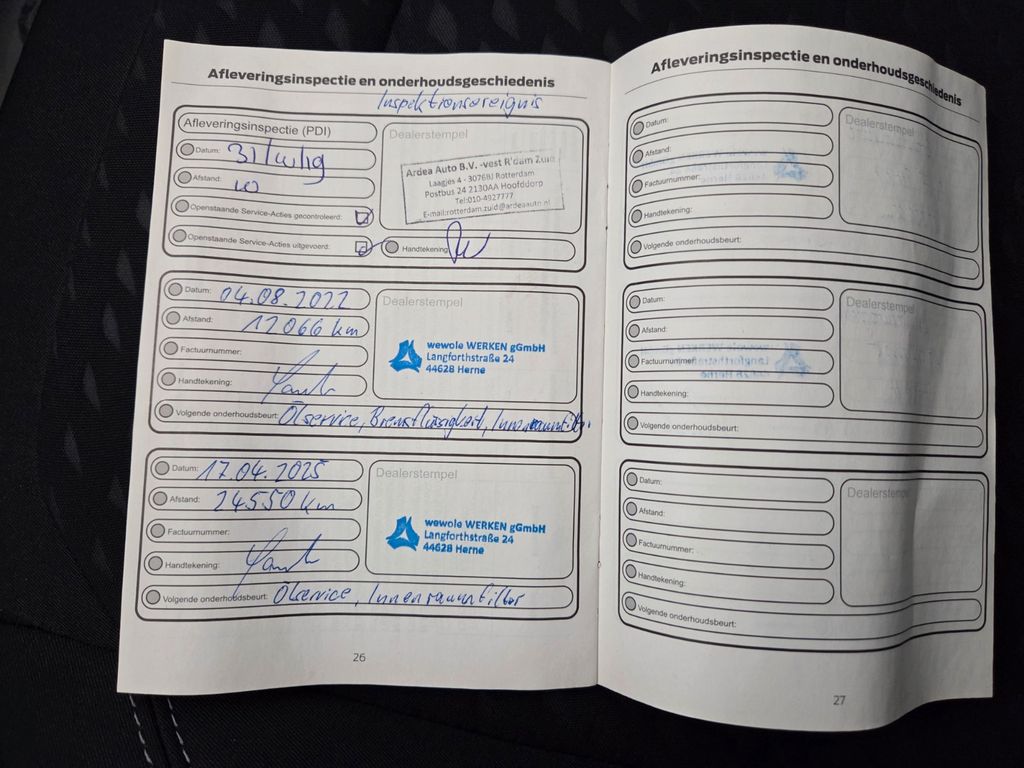 Afleveringsinspectie en onderhoudsgeschiedenis
Inspektionsereignis
Afleveringsinspectie (PDI)
Datum:
Afstand: 10
Openstaande Service-Acties gecontroleerd:
Openstaande Service-Acties uitgevoerd:
Dealerstempel
Ardea Auto B.V. -vest R'dam Zuid
Laagjes 4 - 3076BJ Rotterdam
Postbus 24 2130AA Hoofddorp
Tel:010-4927777
E-mail:rotterdam.zuid@ardeaauto.nl
Handtekening
Datum: 04.08.2022
Afstand: 12066 km
Factuurnummer:
Handtekening:
Volgende onderhoudsbeurt: Ölservice, Bremsflüssigkeit, Innenraumfilter
Dealerstempel
wewole WERKEN gGmbH
Langforthstraße 24
44628 Herne
Datum: 17.04.2025
Afstand: 24550 km
Factuurnummer:
Handtekening:
Volgende onderhoudsbeurt: Ölservice, Innenraumfilter
Dealerstempel
wewole WERKEN gGmbH
Langforthstraße 24
44628 Herne
26
Afleveringsinspectie en onderhoudsgeschiedenis
Datum:
Afstand:
Factuurnummer:
Handtekening:
Volgende onderhoudsbeurt:
Dealerstempel
Datum:
Afstand:
Factuurnummer:
Handtekening:
Volgende onderhoudsbeurt:
Dealerstempel
Datum:
Afstand:
Factuurnummer:
Handtekening:
Volgende onderhoudsbeurt:
Dealerstempel
27